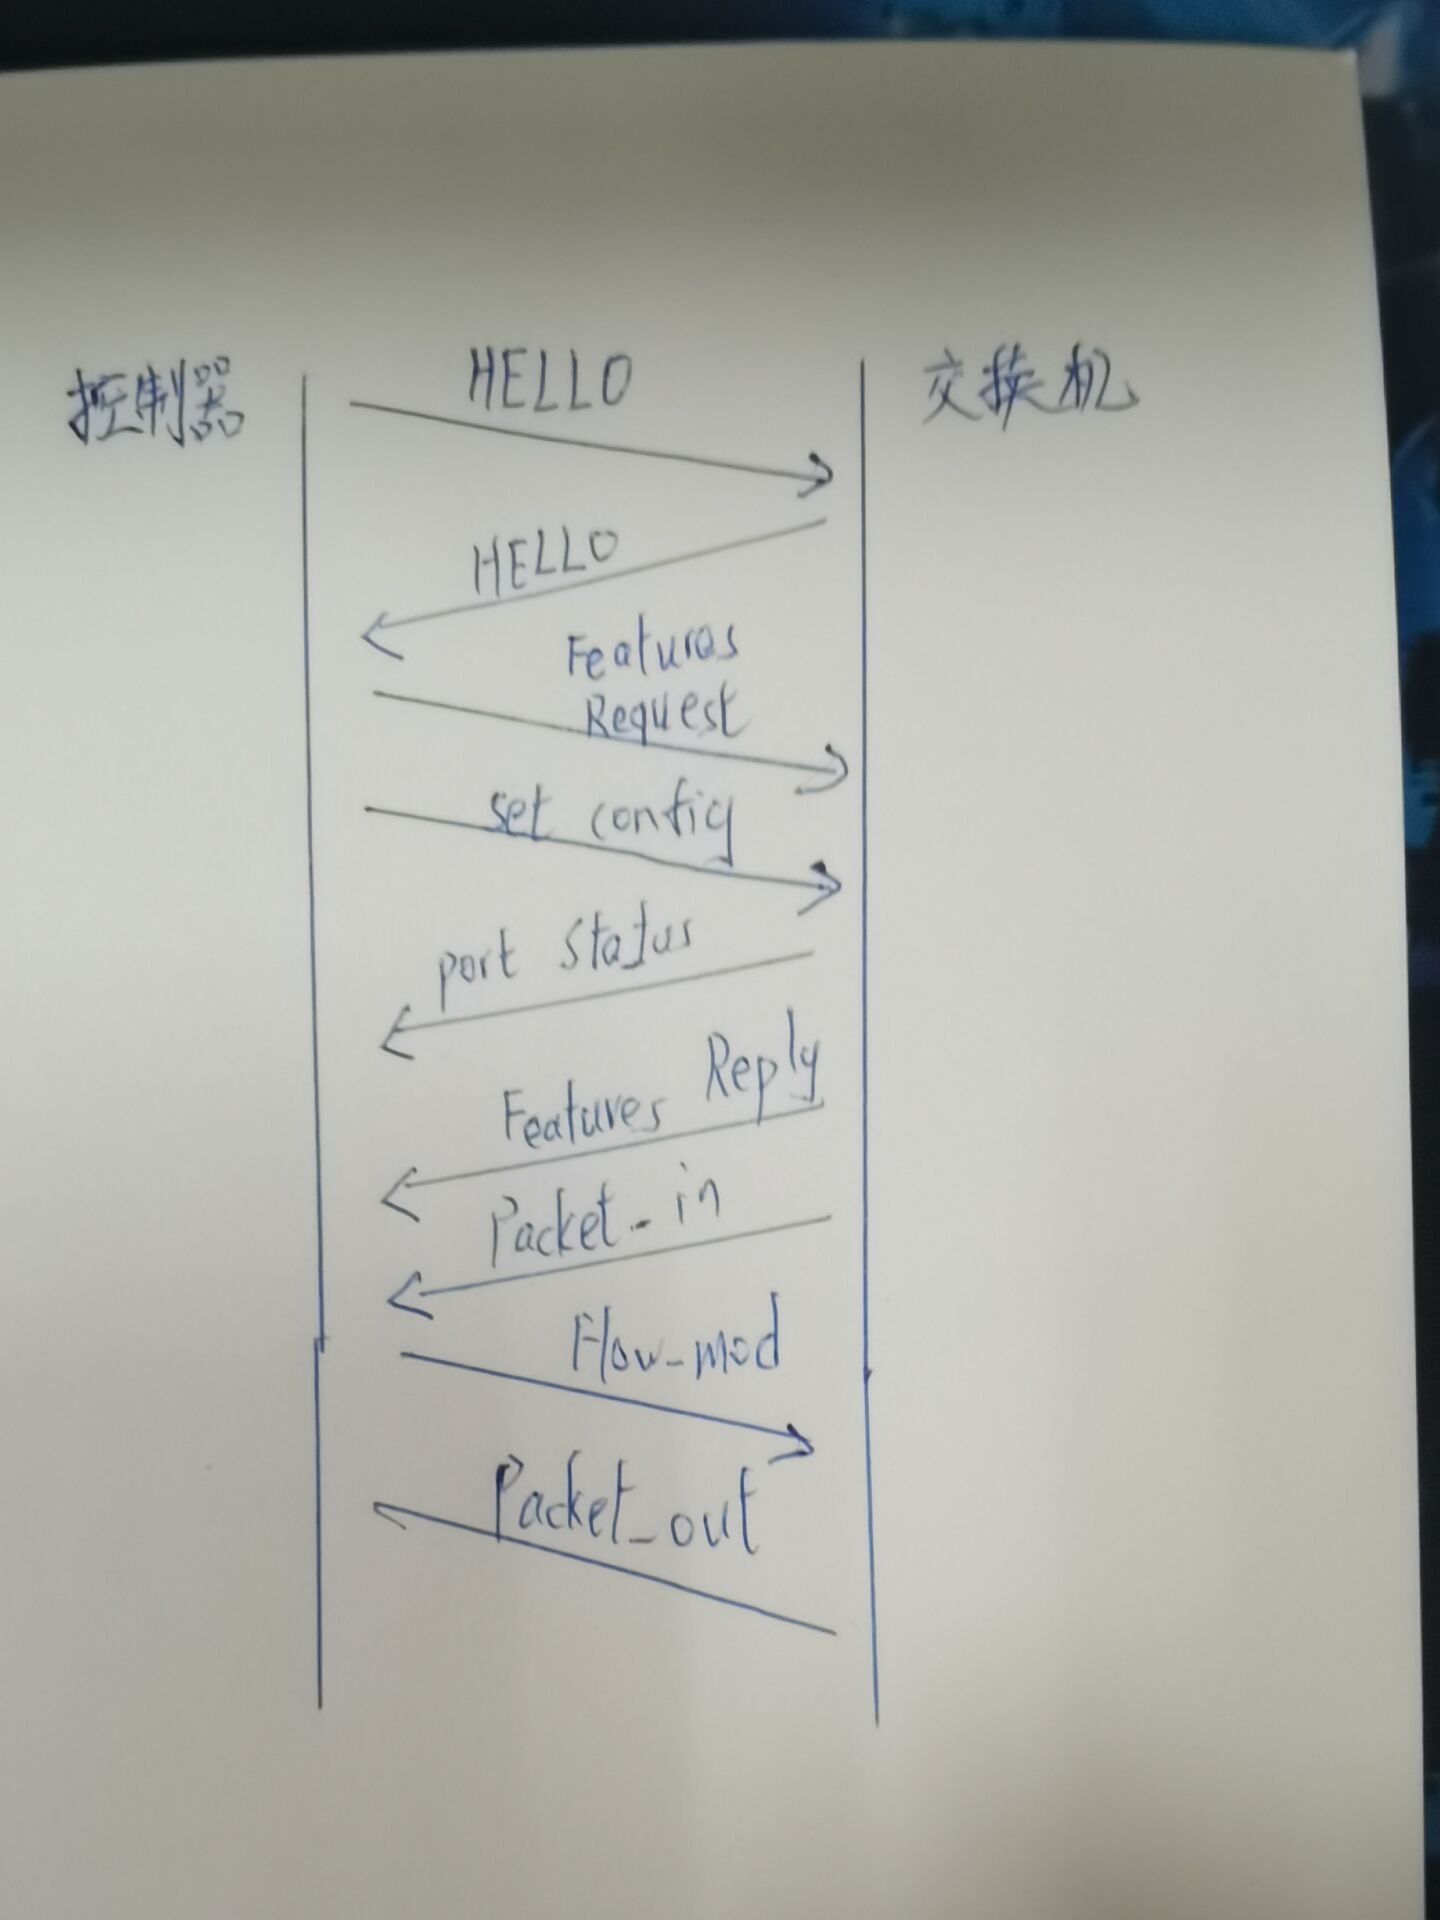 控制器
HELLO
交换机
HELLO
Features
Request
set config
port status
Features Reply
Packet_in
Flow_mod
Packet_out